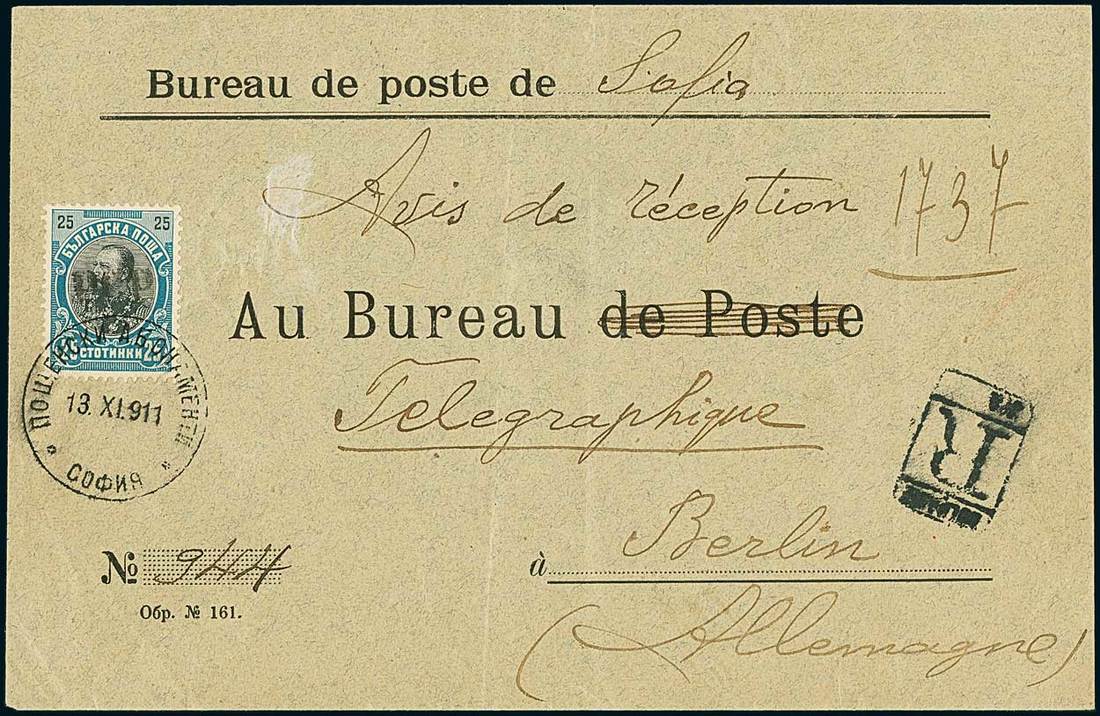 Bureau de poste de Sofia
Avis de réception 1737
25 25
БЪЛГАРСКА ПОЩА
СТОТИНКИ
Au Bureau de Poste
Telegraphique
ПОЩЕНСКИ АБОНАМЕНТИ
13. XI. 911
СОФИЯ
R
Berlin
№ 944 à
Обр. № 161.
(Allemagne)